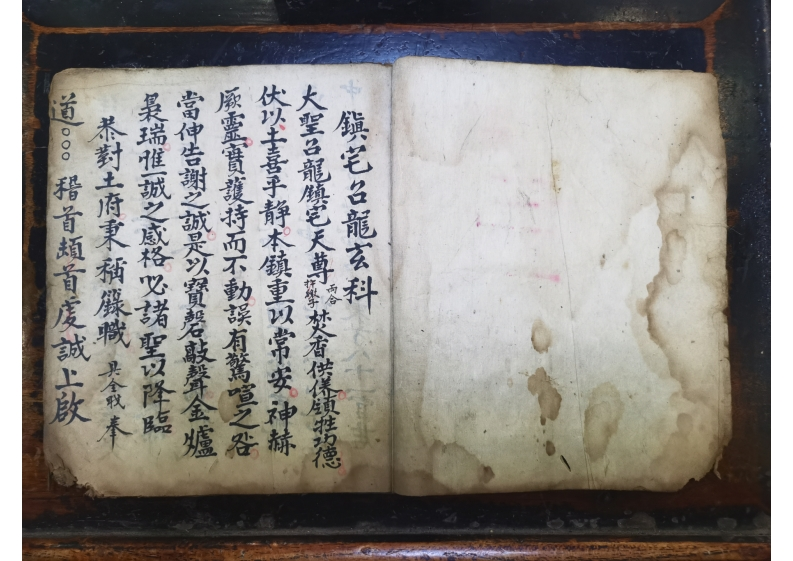 鎮宅召龍玄科
大聖召龍鎮宅天尊 兩合 焚香供養領牲功德
伏以土喜乎静本鎮重以常安神赫
厥靈實護持而不動誤有驚喧之咎
當伸告謝之誠是以寶磬敲聲金爐
裊瑞惟一誠之感格必諸聖以降臨
恭對土府秉稱籙職 具全戝奉
道○○○稽首頓首虔誠上啟